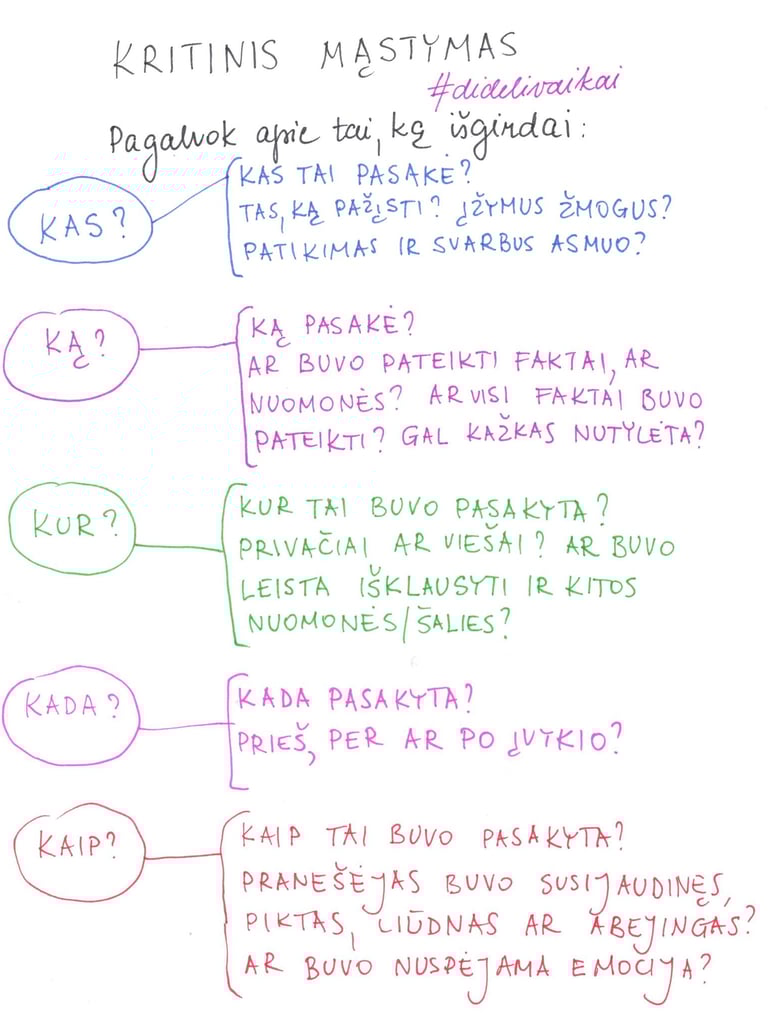 KRITINIS MĄSTYMAS
#didelivaikai
Pagalvok apie tai, ką išgirdai:
KAS?
KAS TAI PASAKĖ?
TAS, KĄ PAŽĮSTI? ĮŽYMUS ŽMOGUS?
PATIKIMAS IR SVARBUS ASMUO?
KĄ?
KĄ PASAKĖ?
AR BUVO PATEIKTI FAKTAI, AR
NUOMONĖS? AR VISI FAKTAI BUVO
PATEIKTI? GAL KAŽKAS NUTYLĖTA?
KUR?
KUR TAI BUVO PASAKYTA?
PRIVAČIAI AR VIEŠAI? AR BUVO
LEISTA IŠKLAUSYTI IR KITOS
NUOMONĖS/ŠALIES?
KADA?
KADA PASAKYTA?
PRIEŠ, PER AR PO ĮVYKIO?
KAIP?
KAIP TAI BUVO PASAKYTA?
PRANEŠĖJAS BUVO SUSIJAUDINĘS,
PIKTAS, LIŪDNAS AR ABEJINGAS?
AR BUVO NUSPĖJAMA EMOCIJA?